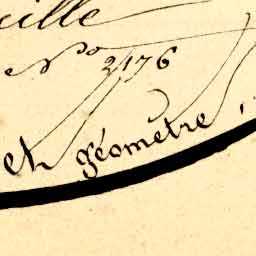 uille
N° 2176
et géometre,